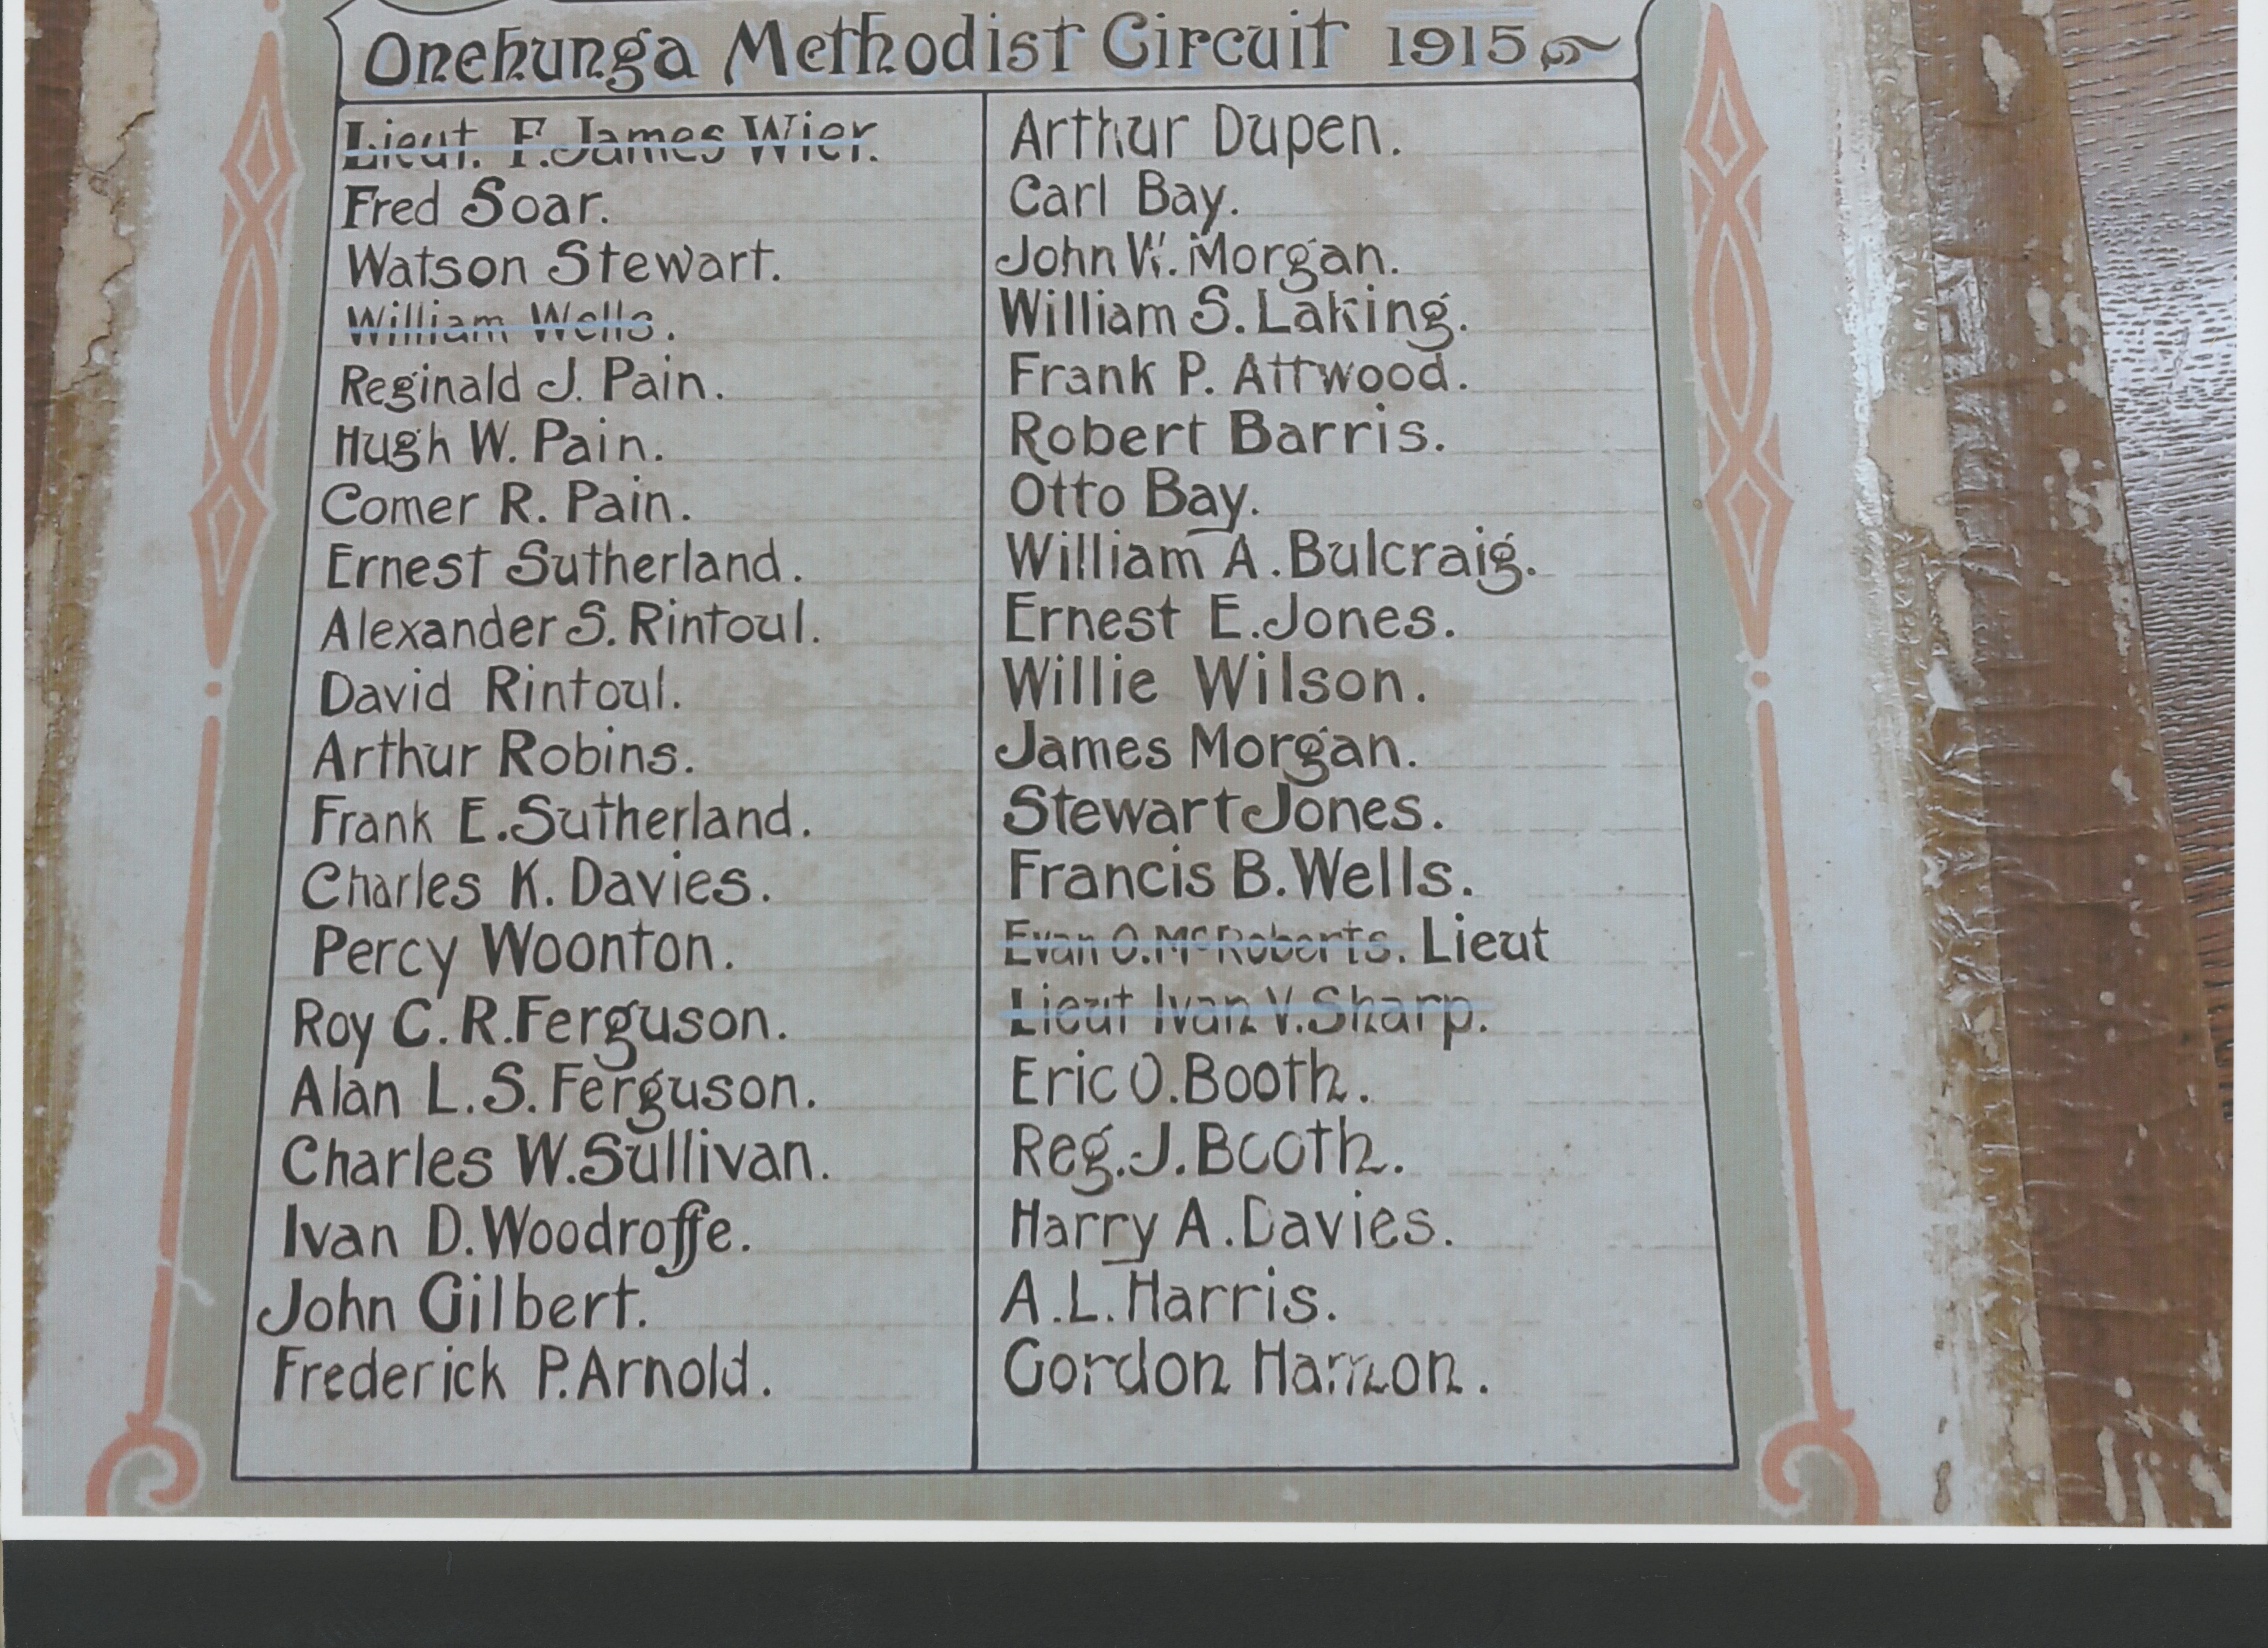 Onehunga Methodist Circuit 1915
Lieut. F. James Wier.
Fred Soar.
Watson Stewart.
William Wells.
Reginald J. Pain.
Hugh W. Pain.
Comer R. Pain.
Ernest Sutherland.
Alexander S. Rintoul.
David Rintoul.
Arthur Robins.
Frank E. Sutherland.
Charles K. Davies.
Percy Woonton.
Roy C. R. Ferguson.
Alan L. S. Ferguson.
Charles W. Sullivan.
Ivan D. Woodroffe.
John Gilbert.
Frederick P. Arnold.
Arthur Dupen.
Carl Bay.
John W. Morgan.
William S. Laking.
Frank P. Attwood.
Robert Barris.
Otto Bay.
William A. Bulcraig.
Ernest E. Jones.
Willie Wilson.
James Morgan.
Stewart Jones.
Francis B. Wells.
Evan O. McRoberts. Lieut
Lieut Ivan V. Sharp.
Eric O. Booth.
Reg. J. Booth.
Harry A. Davies.
A. L. Harris.
Gordon Harmon.